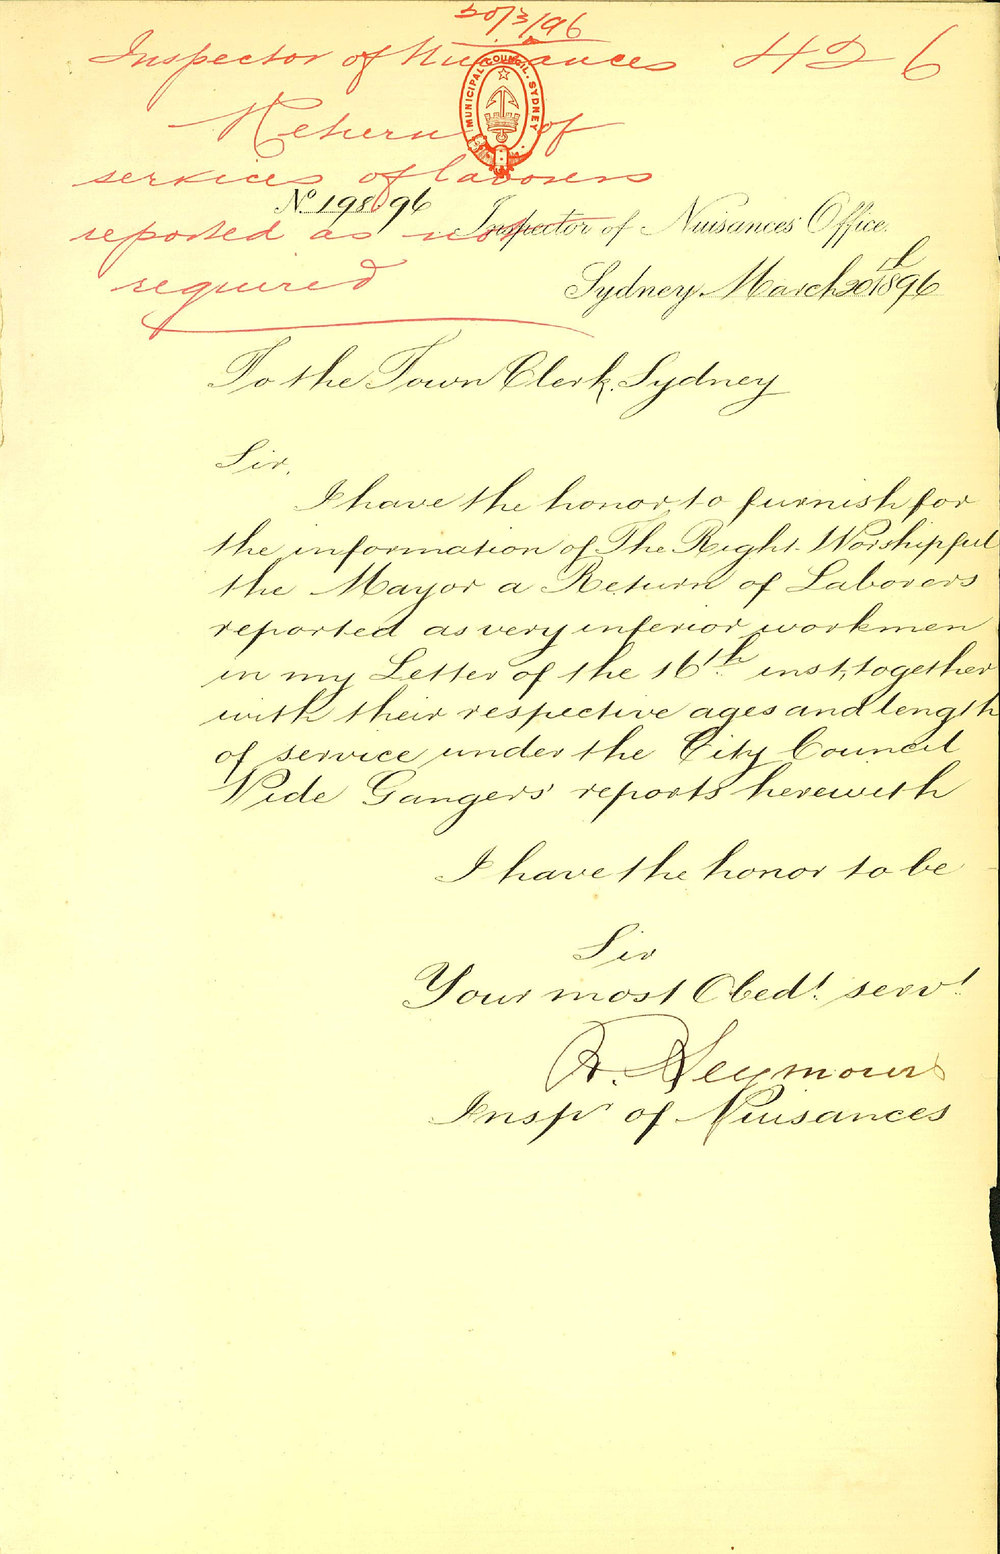 20/3/96
Inspector of Nuisances 426
MUNICIPAL COUNCIL. SYDNEY
Return of
services of laborers
No. 198.96
Inspector of Nuisances Office.
reported as not
required
Sydney, March 20th 1896
To the Town Clerk. Sydney
Sir.
I have the honor, to furnish for
the information of The Right Worshipful
the Mayor a Return of Laborers
reported as very inferior workmen
in my Letter of the 16th inst, together
with their respective ages and length
of service under the City Council
Vide Gangers' reports herewith
I have the honor to be
Sir
Your most Obedt. servt.
R. Seymour
Inspr of Nuisances